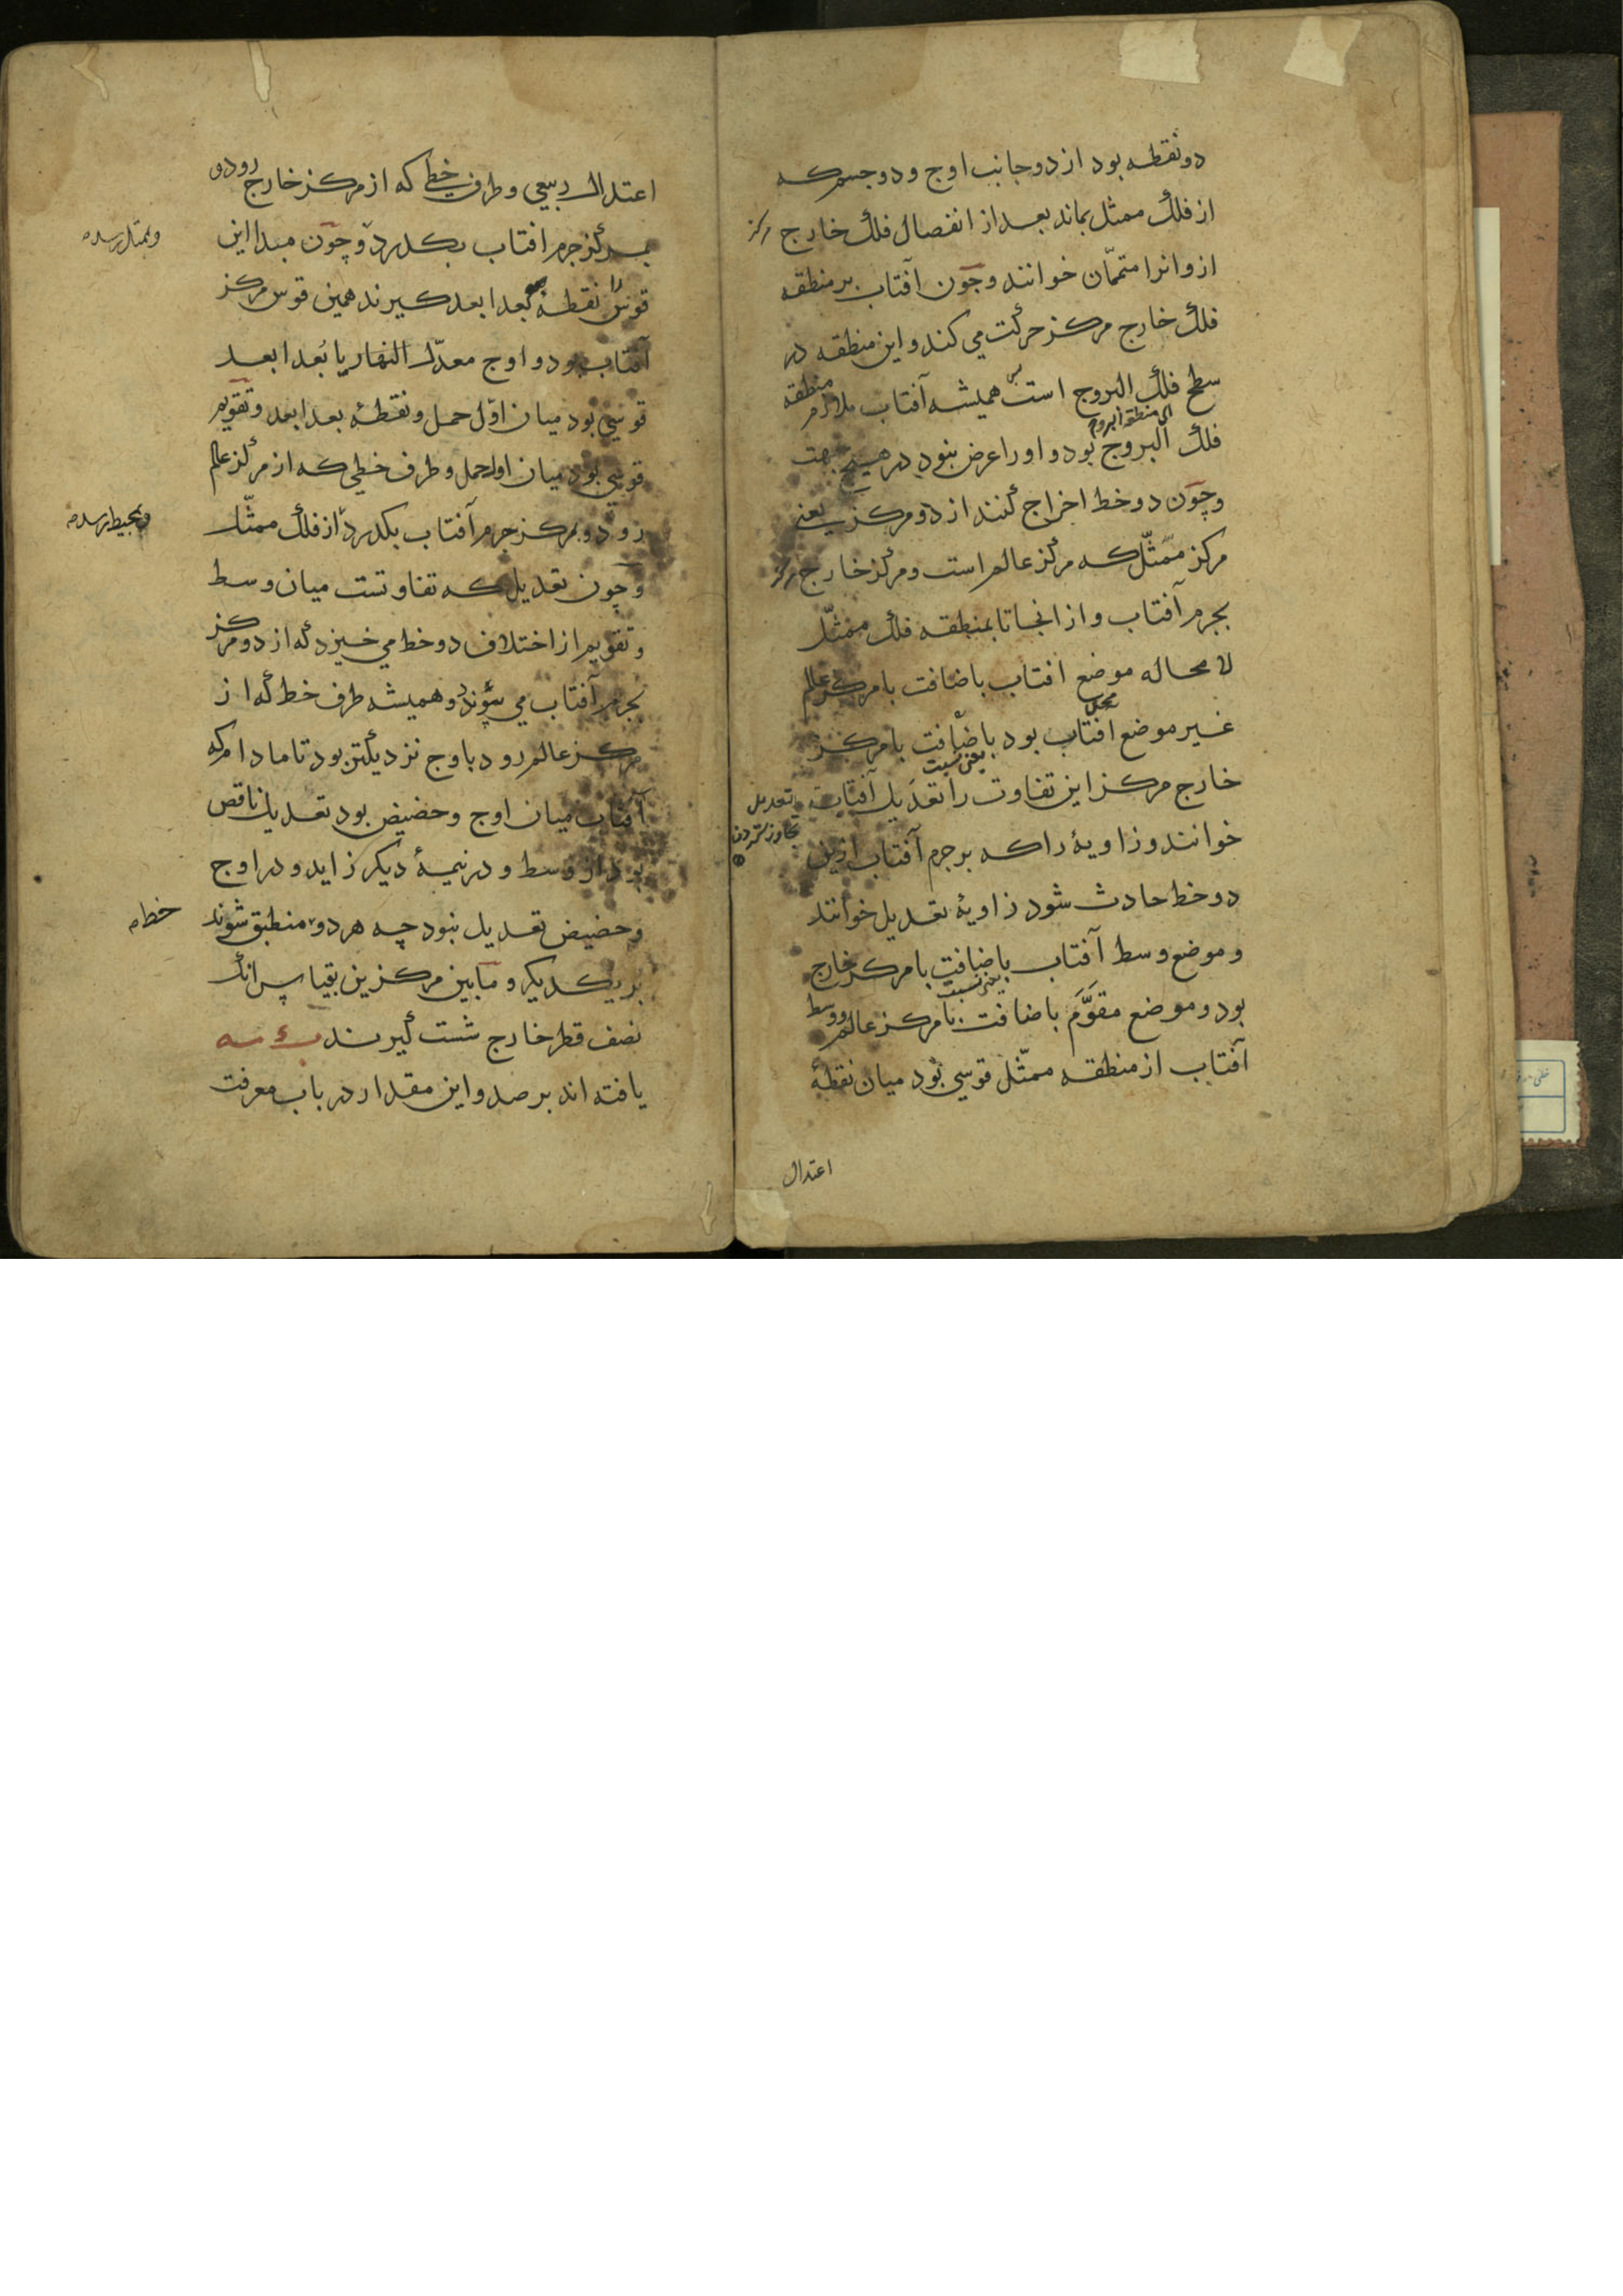 دو نقطه بود از دو جانب اوج و دو جسم که
از فلک ممثل بماند بعد از انفصال فلک خارج مرکز
ازو انرا متمّمان خوانند و چون آفتاب بر منطقه
فلک خارج مرکز حرکت می کند و این منطقه در
سطح فلک البروج است پس همیشه آفتاب ملازم منطقه
ای منطقة البروج
فلک البروج بود و او را عرض نبود در هیچ جهت
و چون دو خط اخراج کنند از دو مرکز یعنی
مرکز ممثّل که مرکز عالم است و مرکز خارج مرکز
بجرم آفتاب و از انجا تا بمنطقه فلک ممثّل
لا محاله موضع افتاب باضافت با مرکز عالم
غیر موضع افتاب بود باضافت با مرکز
یعنی نسبت
خارج مرکز این تفاوت را تعدیل آفتاب
تعدیل
خوانند و زاویهٔ را که بر جرم آفتاب ازین
دو خط حادث شود زاویهٔ تعدیل خوانند
و موضع وسط آفتاب باضافت با مرکز خارج
یعنی نسبت
بود و موضع مقوَّم باضافت با مرکز عالم و وسط
آفتاب از منطقه ممثّل قوسی بود میان نقطهٔ
اعتدال
اعتدال ربیعی و طرف خطی که از مرکز خارج رود و
بمرکز جرم افتاب بکدرد و چون مبدا این
وبممثل رسد
قوس نقطهٔ بعد ابعد کیرند همین قوس مرکز
آفتاب بود و اوج معدّل النهار یا بُعد ابعد
قوسی بود میان اوّل حمل و نقطهٔ بعد ابعد و تقویم
قوسی بود میان اول حمل و طرف خطی که از مرکز عالم
رود و بمرکز جرم آفتاب بکدرد از فلک ممثّل
وبمحیط رسد
و چون تعدیل که تفاوتست میان وسط
و تقویم از اختلاف دو خط می خیزد که از دو مرکز
بجرم آفتاب می پیوندد و همیشه طرف خط که از
مرکز عالم رود باوج نزدیکتر بود تا مادام که
آفتاب میان اوج و حضیض بود تعدیل ناقص
بود از وسط و در نیمهٔ دیکر زاید و در اوج
و حضیض تعدیل نبود چه هر دو منطبق شوند
خط
بر یکدیکر و مابین مرکزین بقیاس انک
نصف قطر خارج شست کیرند
یافته اند برصد و این مقدار در باب معرفت